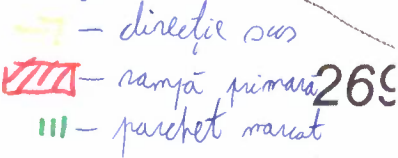 – direcție sus
– rampă primară 269
– parchet marcat